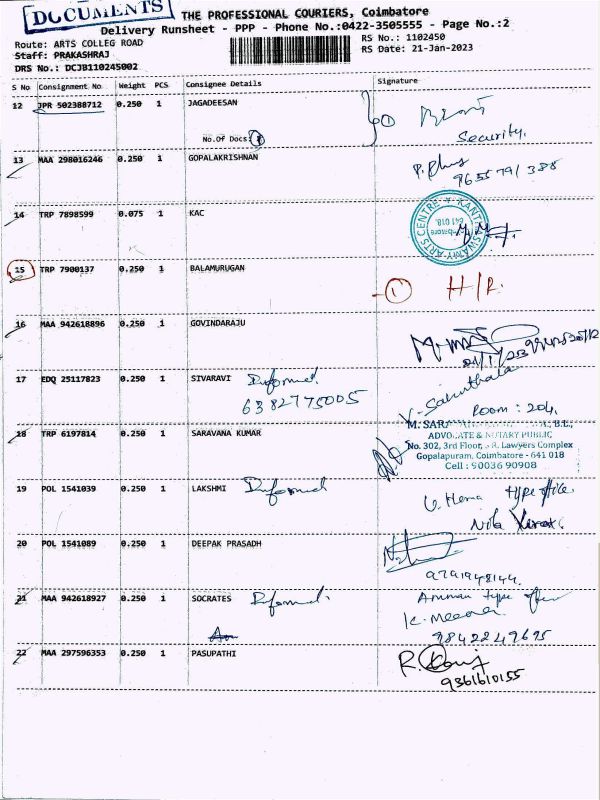 DOCUMENTS
THE PROFESSIONAL COURIERS, Coimbatore
Delivery Runsheet - PPP - Phone No.:0422-3505555 - Page No.:2
Route: ARTS COLLEG ROAD
RS No.: 1102450
Staff: PRAKASHRAJ
RS Date: 21-Jan-2023
DRS No.: DCJB110245002
S No Consignment No Weight PCS Consignee Details Signature
12 JPR 502388712 0.250 1 JAGADEESAN
No.Of Docs:
Security.
13 MAA 298016246 0.250 1 GOPALAKRISHNAN
9655791388
14 TRP 7898599 0.075 1 KAC
ARTS CENTRE
641 018.
15 TRP 7900137 0.250 1 BALAMURUGAN
1 H/R
16 MAA 942618896 0.250 1 GOVINDARAJU
21/1/23
17 EDQ 25117823 0.250 1 SIVARAVI Informed.
6382775005
V. Sakuthala
Room: 204,
18 TRP 6197814 0.250 1 SARAVANA KUMAR
B.L.,
ADVOCATE & NOTARY PUBLIC
No. 302, 3rd Floor, Lawyers Complex
Gopalapuram, Coimbatore - 641 018
Cell : 90036 90908
19 POL 1541039 0.250 1 LAKSHMI Informed
U. Hema type office.
Nila Xerox.
20 POL 1541089 0.250 1 DEEPAK PRASADH
9791948144.
21 MAA 942618927 0.250 1 SOCRATES Informed.
Amman type
K. Meena
9842249695
22 MAA 297596353 0.250 1 PASUPATHI
9361610155